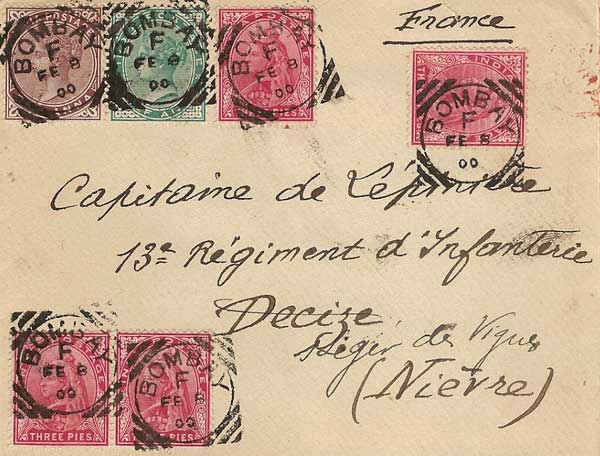 France
BOMBAY
F
FE 8
00
BOMBAY
F
FE 8
00
BOMBAY
F
FE 8
00
BOMBAY
F
FE 8
00
INDIA
Capitaine de Lépinière
13e Régiment d'Infanterie
Decize
(Nièvre)
BOMBAY
F
FE 8
00
BOMBAY
F
FE 8
00
THREE PIES
THREE PIES